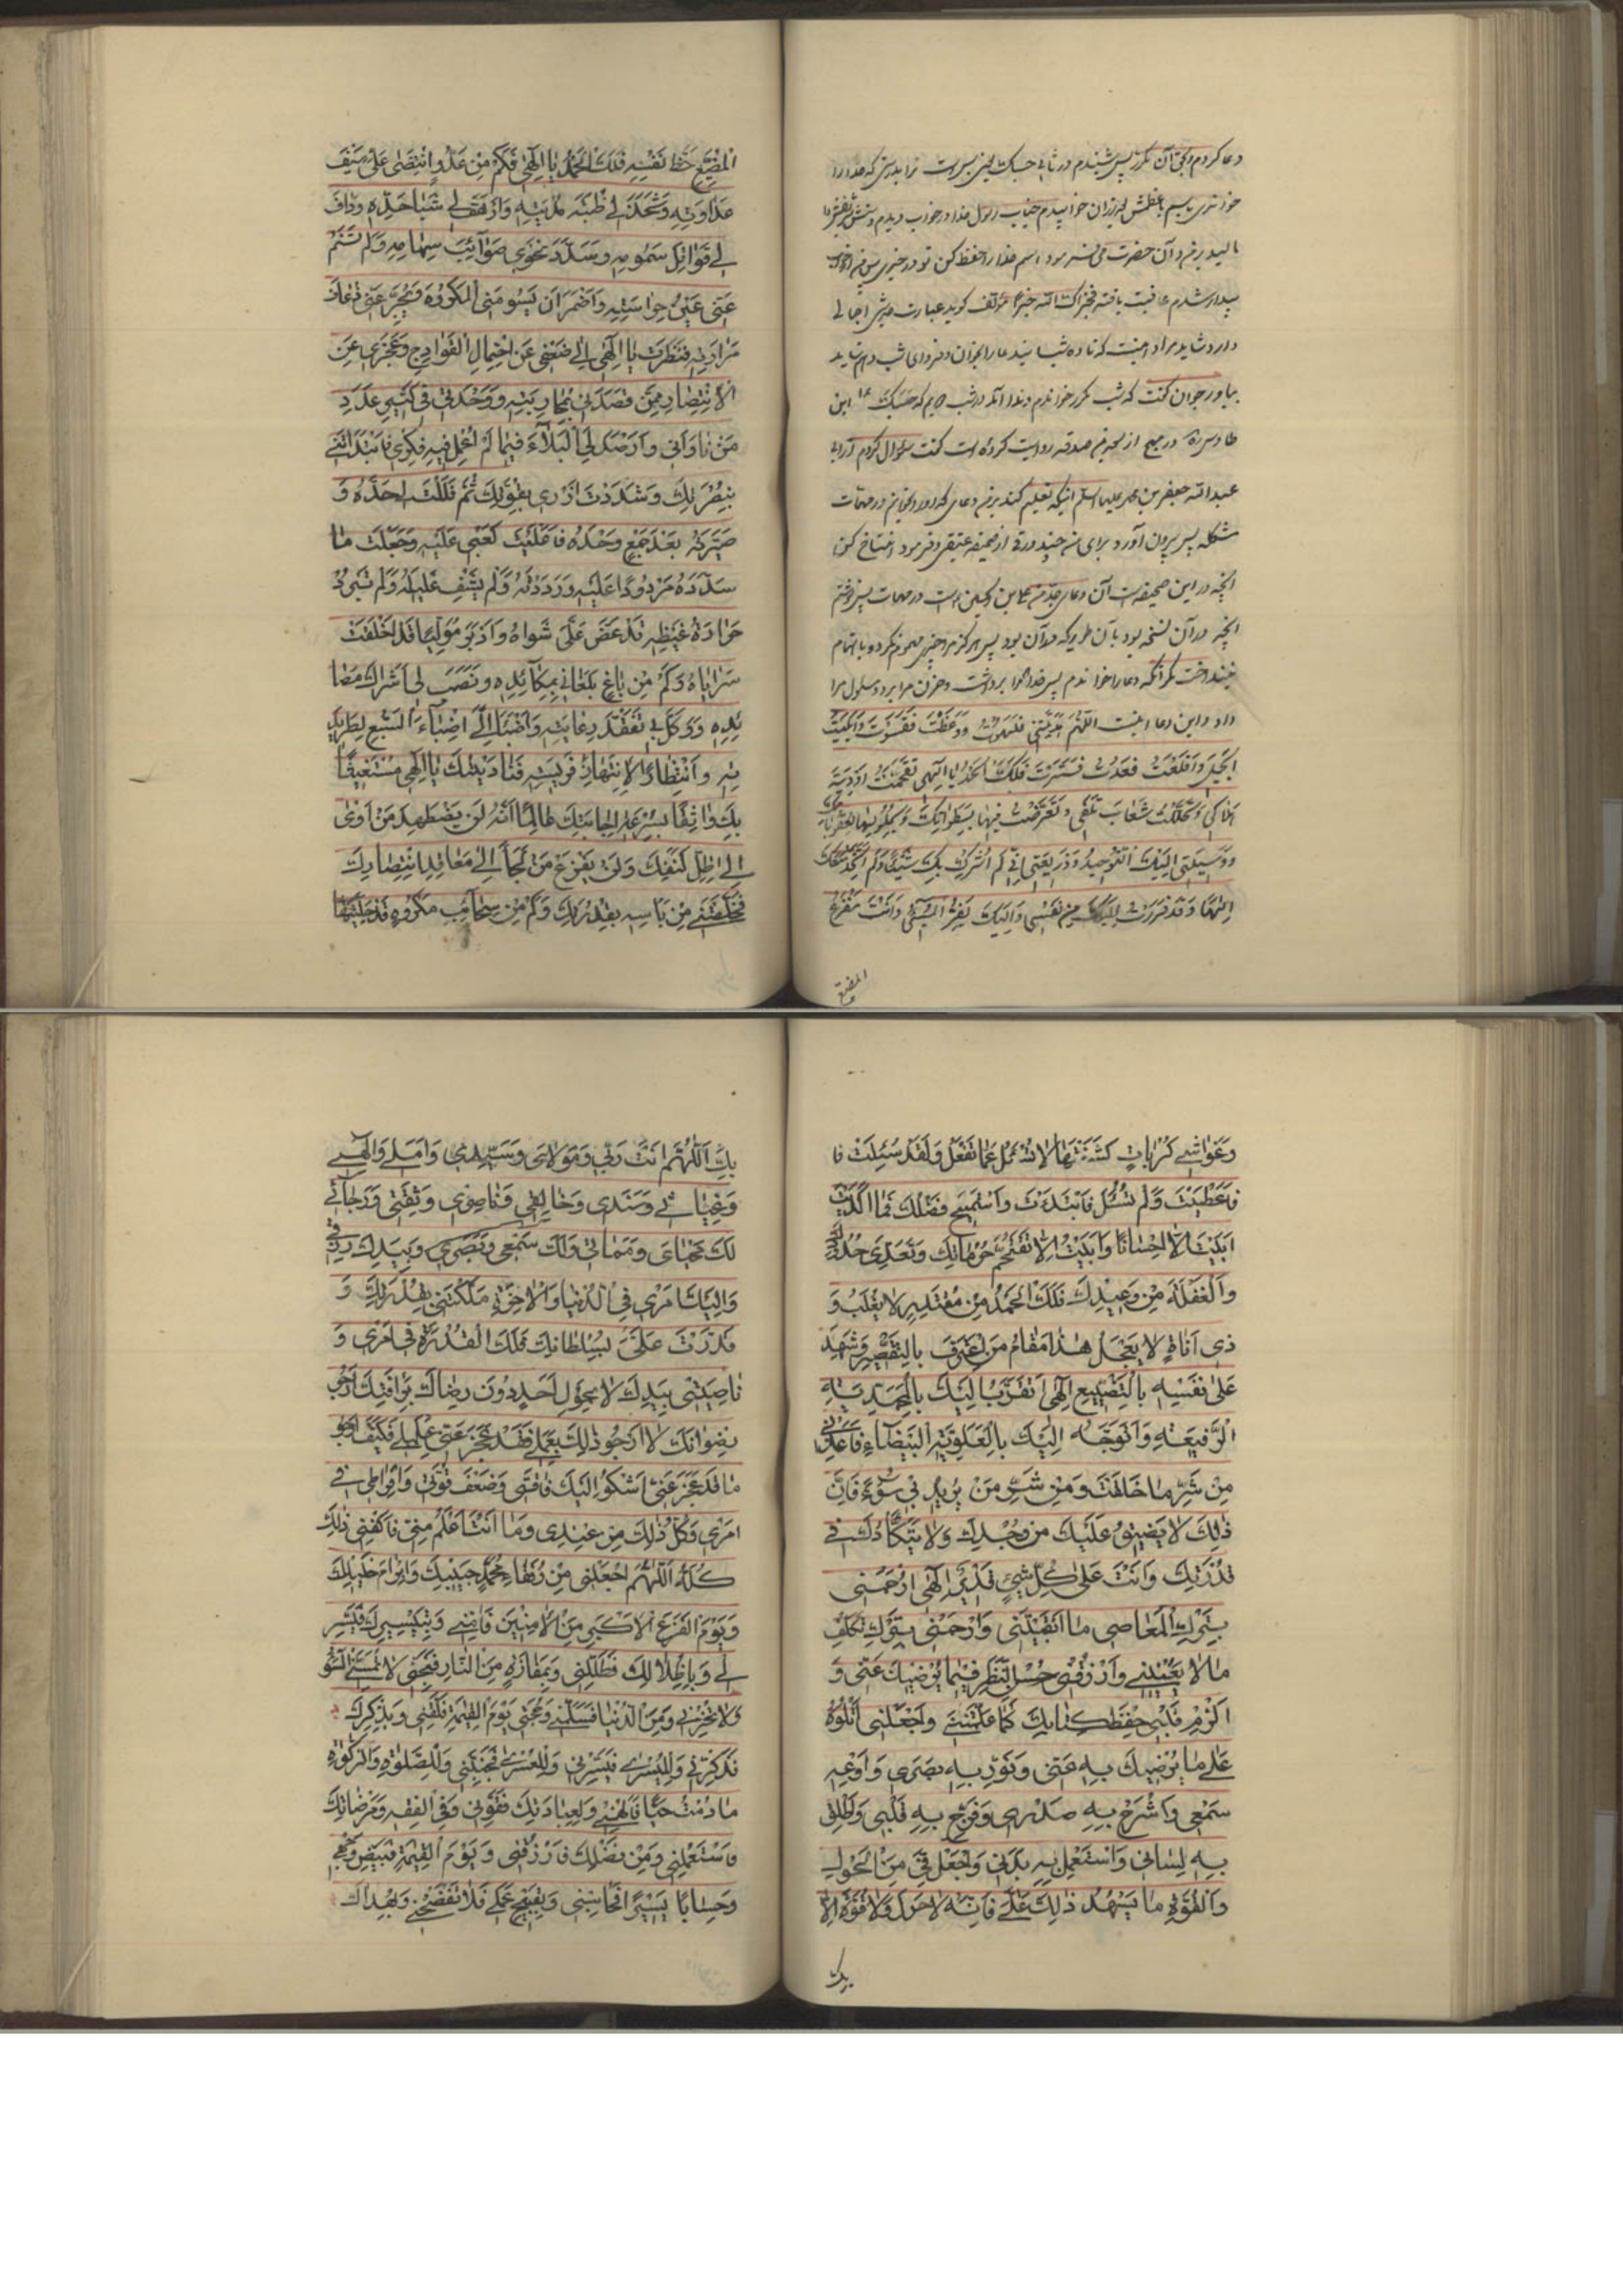 دعا کردم و بحق آن مکرر پس شنیدم در ثانی حسبک یعنی بس است ترا بدرستی که خدا را
بیدار شدم عافیت یافته فخزاک الله خیرا مؤلف کوید عبارت میرش اجمالی
دارد شاید مراد اینست که تا ده شب
بیاورجوان کفت که شب مکرر خواندم و ندا آمد در شب دیم که حسبک ابن
طاوس ره در مهج از روایت کرده است کفت سؤال کردم از ابا
عبدالله جعفر بن محمد علیهما السلم اینکه تعلیم کند بمن دعای که او را بخوانم در مهمات
مشکله پس بیرون آورد برای من چند ورقی از صحیفه عتیقی و فرمود انتساخ کن
آنچه در این صحیفه است آن دعای جدم علی بن الحسین است در مهمات پس نوشتم
آنچه در آن نسخه بود بآن طریق که در آن بود پس هرکز مرا چیزی مهموم نکرد و باهتمام
نینداخت مکر آنکه دعا را خواندم پس خدا هم را برداشت و حزن مرا برد و سئول مرا
داد و این دعا اینست اللهم هدیتنی فلهوت ووعظت فقسوت وابلیت
الجمیل وافلعت فعدت فسترت فلک الحمد یا الهی تقحمت اودیة
هلاکی وتحللت شعاب تلفی وتعرضت فیها بسطواتک وبحلولها لعقوباتک
ووسیلتی الیک التوحید وذریعتی انی لم اشرک بک شیئا ولم اتخذ معک
الها وقد فررت الیک من نفسی والیک یفر المسیء وانت مفزع
المضیع
المضیع حظ نفسه فلک الحمد یا الهی فکم من عدو انتضی علی سیف
عداوته وشحذ لی ظبة مدیته وارهف لی شبا حده وداف
لی قواتل سمومه وسدد نحوی صوائب سهامه ولم تنم
عنی عین حراسته واضمر ان یسومنی المکروه ویجرعنی ذعاف
مرارته فنظرت یا الهی الی ضعفی عن احتمال الفوادح وعجزی عن
الانتصار ممن قصدنی بمحاربته ووحدتی فی کثیر عدد
من ناوانی وارصد لی البلاء فیما لم اعمل فیه فکری فابتدأتنی
بنصرک وشددت ازری بقوتک ثم فللت لی حده و
صیرته بعد جمع وحده فاعلیت کعبی علیه وجعلت ما
سدده مردودا علیه ورددته ولم یشف غلیله ولم تبرد
حرارة غیظه قد عض علی شواه وادبر مولیا قد اخلفت
سرایاه وکم من باغ بغانی بمکائده ونصب لی اشراک مصا
ئده ووکل بی تفقد رعایته واضبأ الی اضباء السبع لطرید
ته وانتظارا لانتهاز فریسته فنادیتک یا الهی مستغیثا
بک واثقا بسرعة اجابتک عالما انه لن یضطهد من اوی
الی ظل کنفک ولن یفزع من لجأ الی معاقل انتصارک
فحصنتنی من باسه بقدرتک وکم من سحائب مکروه قد جلیتها
وغواشی کربات کشفتها لا تسئل عما تفعل ولقد سئلت فا
فاعطیت ولم تسئل فابتدءت واستمیح فضلک فما اکدیت
ابیت الا احسانا وابیت الا تقحم حرماتک وتعدی حدودک
والغفلة من وعیدک فلک الحمد من مقتدر لا یغلب و
ذی اناة لا یعجل هذا مقام من اعترف بالتقصیر وشهد
علی نفسه بالتضییع الهی اتقرب الیک بالمحمدیة
الرفیعة واتوجه الیک بالعلویة البیضاء فاعذنی
من شر ما خلقت ومن شر من یرید بی سوء فان
ذلک لا یضیق علیک من وجدک ولا یتکأدک فی
قدرتک وانت علی کل شیء قدیر الهی ارحمنی
بترک المعاصی ما ابقیتنی وارحمنی بترک تکلف
ما لا یعنینی وارزقنی حسن النظر فیما یرضیک عنی و
الزم قلبی حفظ کتابک کما علمتنی واجعلنی اتلوه
علی ما یرضیک به عنی ونور به بصری واوعه
سمعی واشرح به صدری وفرج به قلبی واطلق
به لسانی واستعمل به بدنی واجعل فی من الحول
والقوة ما یسهل ذلک علی فانه لا حول ولا قوة الا
بک
بک اللهم انت ربی ومولای وسیدی واملی والهی
وغیاثی وسندی وخالقی وناصری وثقتی ورجائی
لک محیای ومماتی ولک سمعی وبصری وبیدک رزقی
والیک امری فی الدنیا والاخرة ملکتنی بقدرتک و
قدرت علی بسلطانک فلک القدرة فی امری و
ناصیتی بیدک لا یحول احد دون رضاک برافتک ارجو
رضوانک لا ارجو ذلک بعملی فقد عجز عنی عملی فکیف ارجو
ما قد عجز عنی اشکو الیک فاقتی وضعف قوتی وافراطی فی
امری وکل ذلک من عندی وما انت اعلم منی فاکفنی ذلک
کله اللهم اجعلنی من رفقاء محمد حبیبک وابرهم خلیلک
ویوم الفزع الاکبر من الامنین فامنی وبتیسیرک فیسر
لی وباظلالک فظللنی وبمفازة من النار فنجنی لا تمسنی السوء
ولا تخزنی ومن الدنیا فسلمنی وحجتی یوم القیمة فلقنی وبذکرک
فذکرنی وللیسری فیسرنی وللعسری فجنبنی وللصلوة والزکوة
ما دمت حیا فالهمنی ولعبادتک فقونی وفی الفقه ومرضاتک
فاستعملنی ومن فضلک فارزقنی ویوم القیمة فبیض وجهی
وحسابا یسیرا فحاسبنی وبقبیح عملی فلا تفضحنی وبهداک